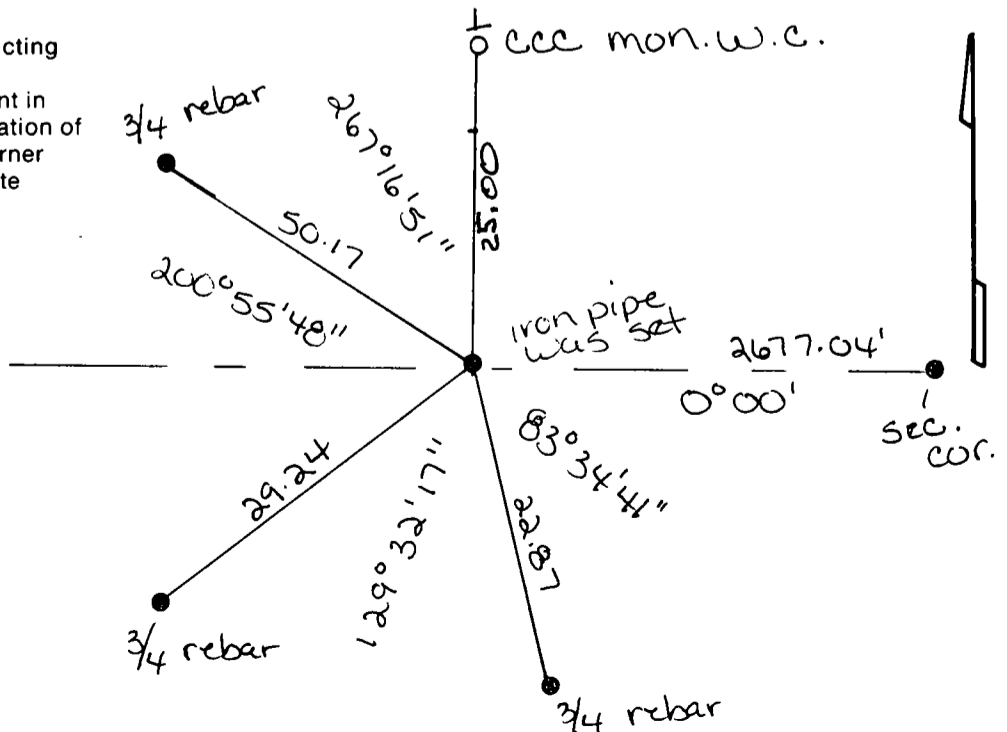 cting
nt in
ation of
rner
te
1/0 CCC mon. w.c.
3/4 rebar
267°16'51"
25.00
50.17
200°55'48"
iron pipe
was set
2677.04'
0°00'
sec.
cor.
83°34'41"
29.24
129°32'17"
22.87
3/4 rebar
3/4 rebar